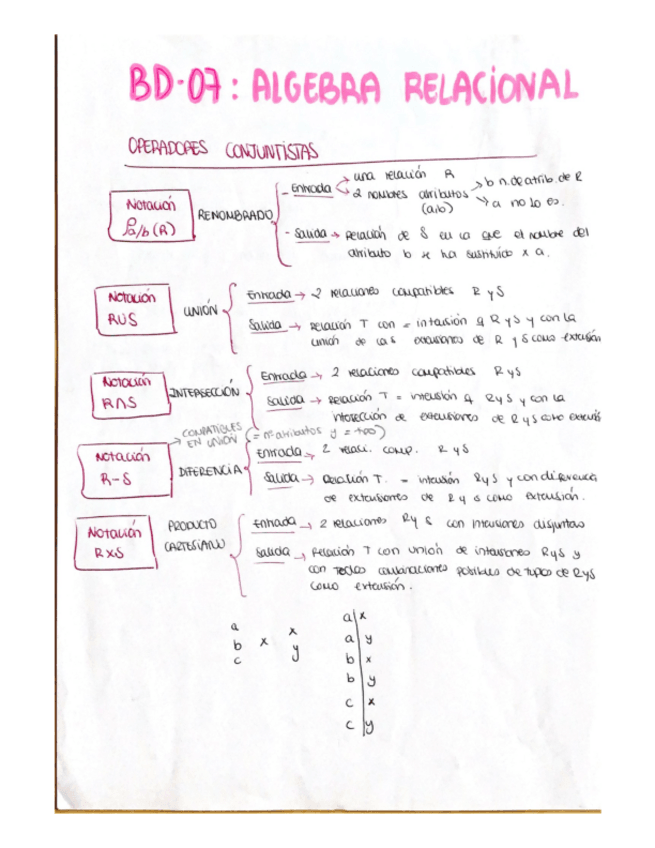 BD-07: ALGEBRA RELACIONAL
OPERADORES CONJUNTISTAS
Notación
ρa/b (R)
RENOMBRADO
- Entrada
una relación R
2 nombres atributos
(a,b)
b n. de atrib. de R
a no lo es.
- Salida → Relación de S en la que el nombre del
atributo b se ha sustituido x a.
Notación
RUS
UNIÓN
Entrada → 2 relaciones compatibles R y S
Salida → Relación T con = intensión q R y S y con la
unión de las extensiones de R y S como extensión
Notación
R∩S
INTERSECCIÓN
Entrada → 2 relaciones compatibles R y S
Salida → Relación T = intensión q R y S y con la
intersección de extensiones de R y S como extensió
COMPATIBLES
EN UNIÓN (= nº atributos y = tipo)
Notación
R-S
DIFERENCIA
Entrada → 2 relaci. comp. R y S
Salida → Relación T. = intensión R y S y con diferencia
de extensiones de R y S como extensión.
Notación
RxS
PRODUCTO
CARTESIANO
Entrada → 2 relaciones R y S con intensiones disjuntas
Salida → Relación T con unión de intensiones R y S y
con todas combinaciones posibles de tuplas de R y S
como extensión.
a
b
c
x
x
y
a | x
a | y
b | x
b | y
c | x
c | y